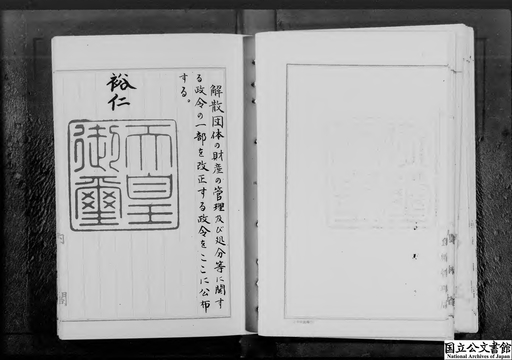 解散団体の財産の管理及び処分等に関す
る政令の一部を改正する政令をここに公布
する。
裕仁
天皇
御璽
国立公文書館
National Archives of Japan